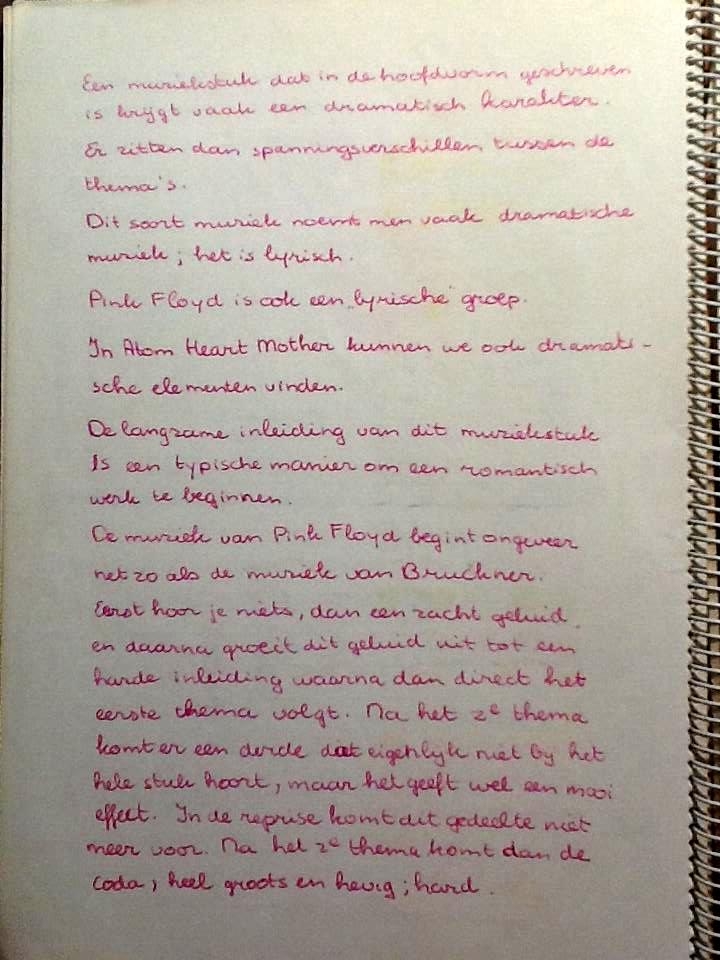 Een muziekstuk dat in de hoofdvorm geschreven
is krijgt vaak een dramatisch karakter.
Er zitten dan spanningsverschillen tussen de
thema's.
Dit soort muziek noemt men vaak dramatische
muziek; het is lyrisch.
Pink Floyd is ook een „lyrische" groep.
In Atom Heart Mother kunnen we ook dramati-
sche elementen vinden.
De langzame inleiding van dit muziekstuk
Is een typische manier om een romantisch
werk te beginnen.
De muziek van Pink Floyd begint ongeveer
net zo als de muziek van Bruckner.
Eerst hoor je niets, dan een zacht geluid
en daarna groeit dit geluid uit tot een
harde inleiding waarna dan direct het
eerste thema volgt. Na het 2e thema
komt er een derde dat eigenlijk niet by het
hele stuk hoort, maar het geeft wel een mooi
effect. In de reprise komt dit gedeelte niet
meer voor. Na het 2e thema komt dan de
coda, heel groots en hevig; hard.